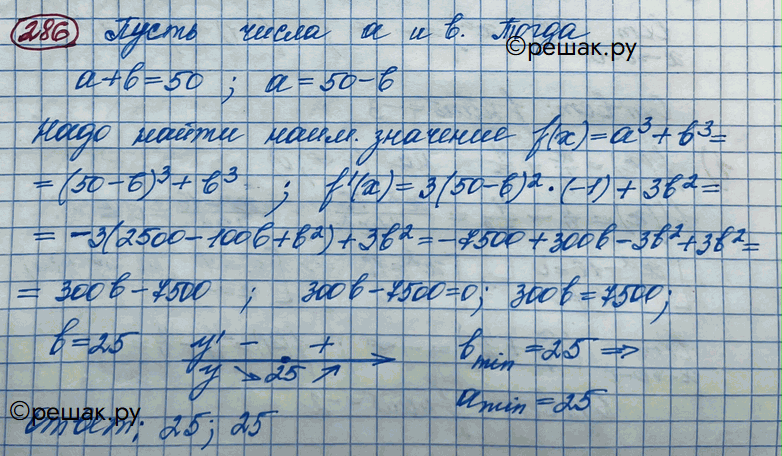 286 Пусть числа a и b. Тогда
©решак.ру
a+b=50 ; a=50-b
Надо найти наим. значение f(x)=a³+b³=
=(50-b)³+b³ ; f'(x)=3(50-b)²·(-1)+3b²=
=-3(2500-100b+b²)+3b²=-7500+300b-3b²+3b²=
=300b-7500 ; 300b-7500=0; 300b=7500;
b=25 y' - + b min =25 ⇒
y ↘ 25 ↗ a min =25
©решак.ру
Ответ: 25; 25